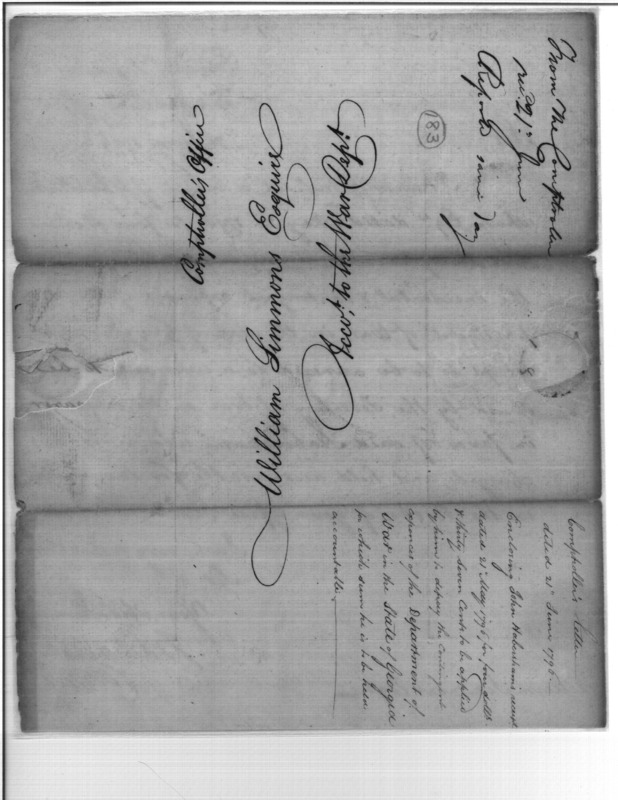 From the Comptroller
rec'd 21st June
Report same day
183
Comptroller's Office
William Simmons Esquire
Acco't to the War Dep't
Comptroller's letter
dated 21st June 1796
Enclosing John Habersham's receipt
dated 21st May 1796 for four dolls
& thirty seven Cents to be applied
by him to defray the Contingent
expences of the Department of
War in the State of Georgia
for which sum he is to be held
accountable.